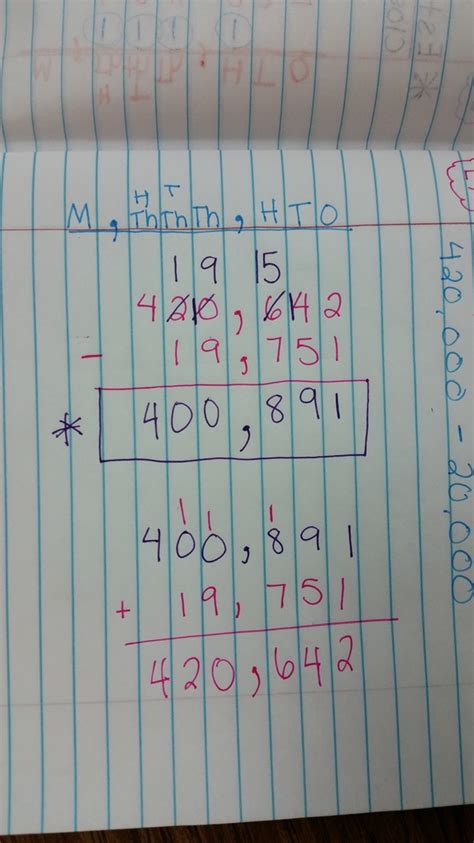 M , HTh TTh Th , H T O
1 9 15
420,642
- 19,751
* 400,891
1 1 1
400,891
+ 19,751
420,642
420,000 - 20,000